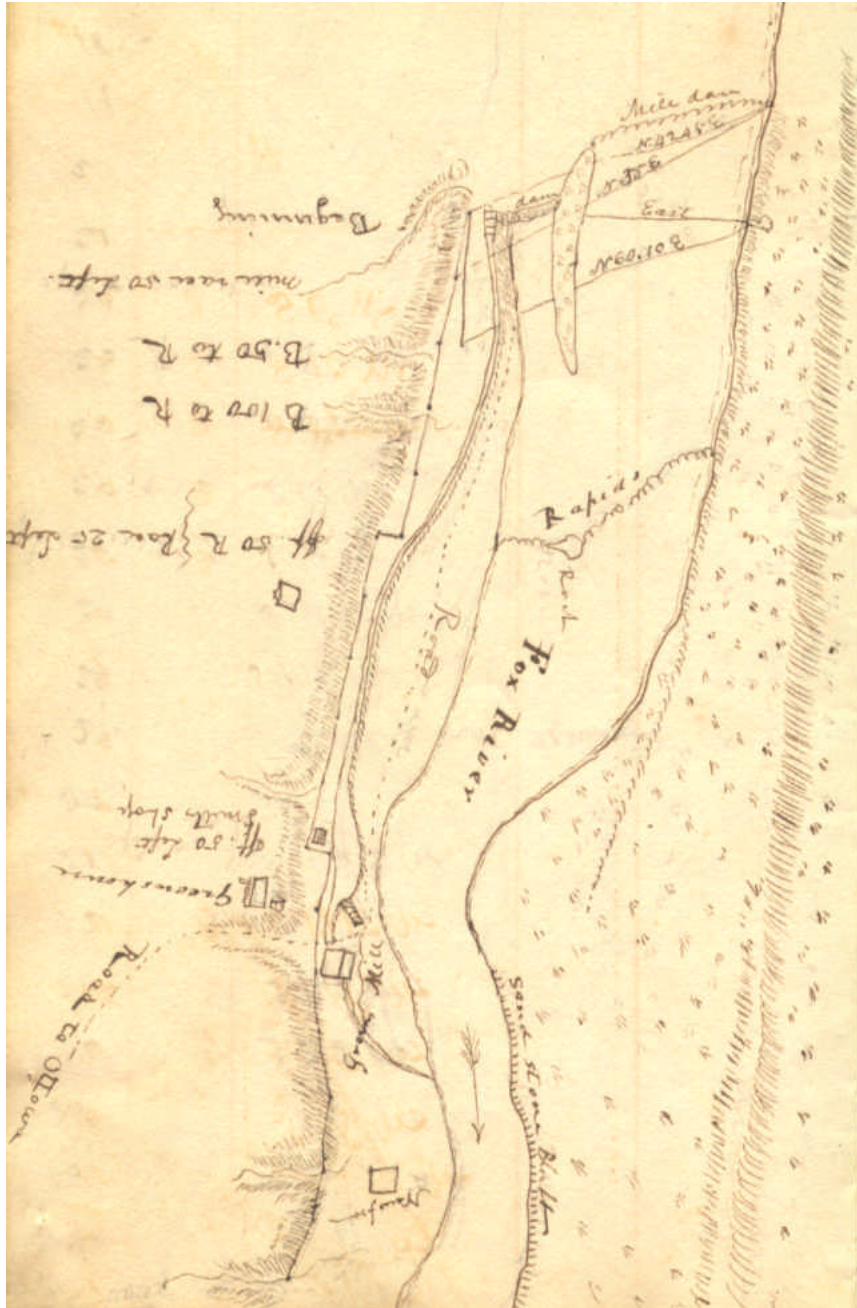 Mill dam
N 42 45 E
N 55 E
dam
East
N 60.10 E
Beginning
mill race 50 left.
B. 50 to R
B 100 to R
off. 50 R { Race 25 left
Rapids
Rock
Road
Fox River
off. 50 left
Smith shop
Greens house
Road to Ottowa
Green Mill
Sand stone Bluff